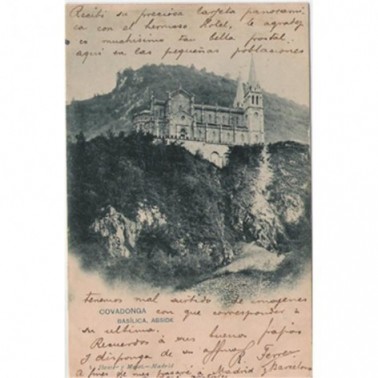 Recibí su preciosa tarjeta panorami
ca con el hermoso Hotel, le agradez
co muchísimo tan bella postal,
aquí en las pequeñas poblaciones
COVADONGA
BASÍLICA, ABSIDE
tenemos mal surtido de imagenes
con que corresponder a
su ultima.
Recuerdos á mis buenos papás
y disponga de su affmo
R. Ferrer
Hauser y Menet.-Madrid
á Madrid y Barcelona